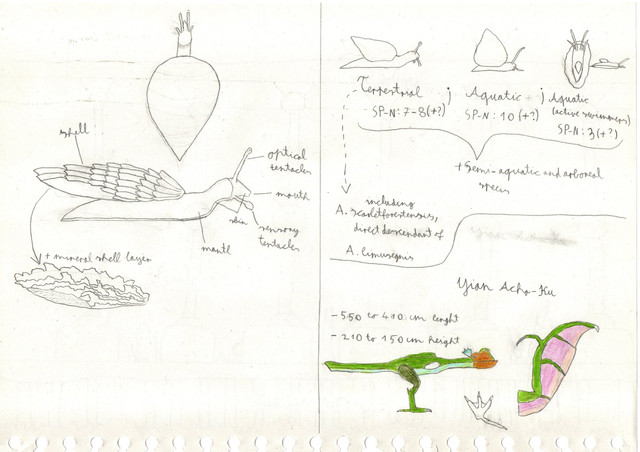 shell
optical
tentacles
mouth
skin
sensory
tentacles
mantl
+ mineral shell layer
Terrestrial ; Aquatic ; Aquatic
(active swimmers)
SP-N: 7-8(+?) SP-N: 10(+?) SP-N: 3(+?)
+ Semi-aquatic and arboreal
specis
including
A. scarletforestensis,
direct descendant of
A. limusegnis
Yian Acho-Ku
- 550 to 410 cm lenght
- 210 to 150 cm height